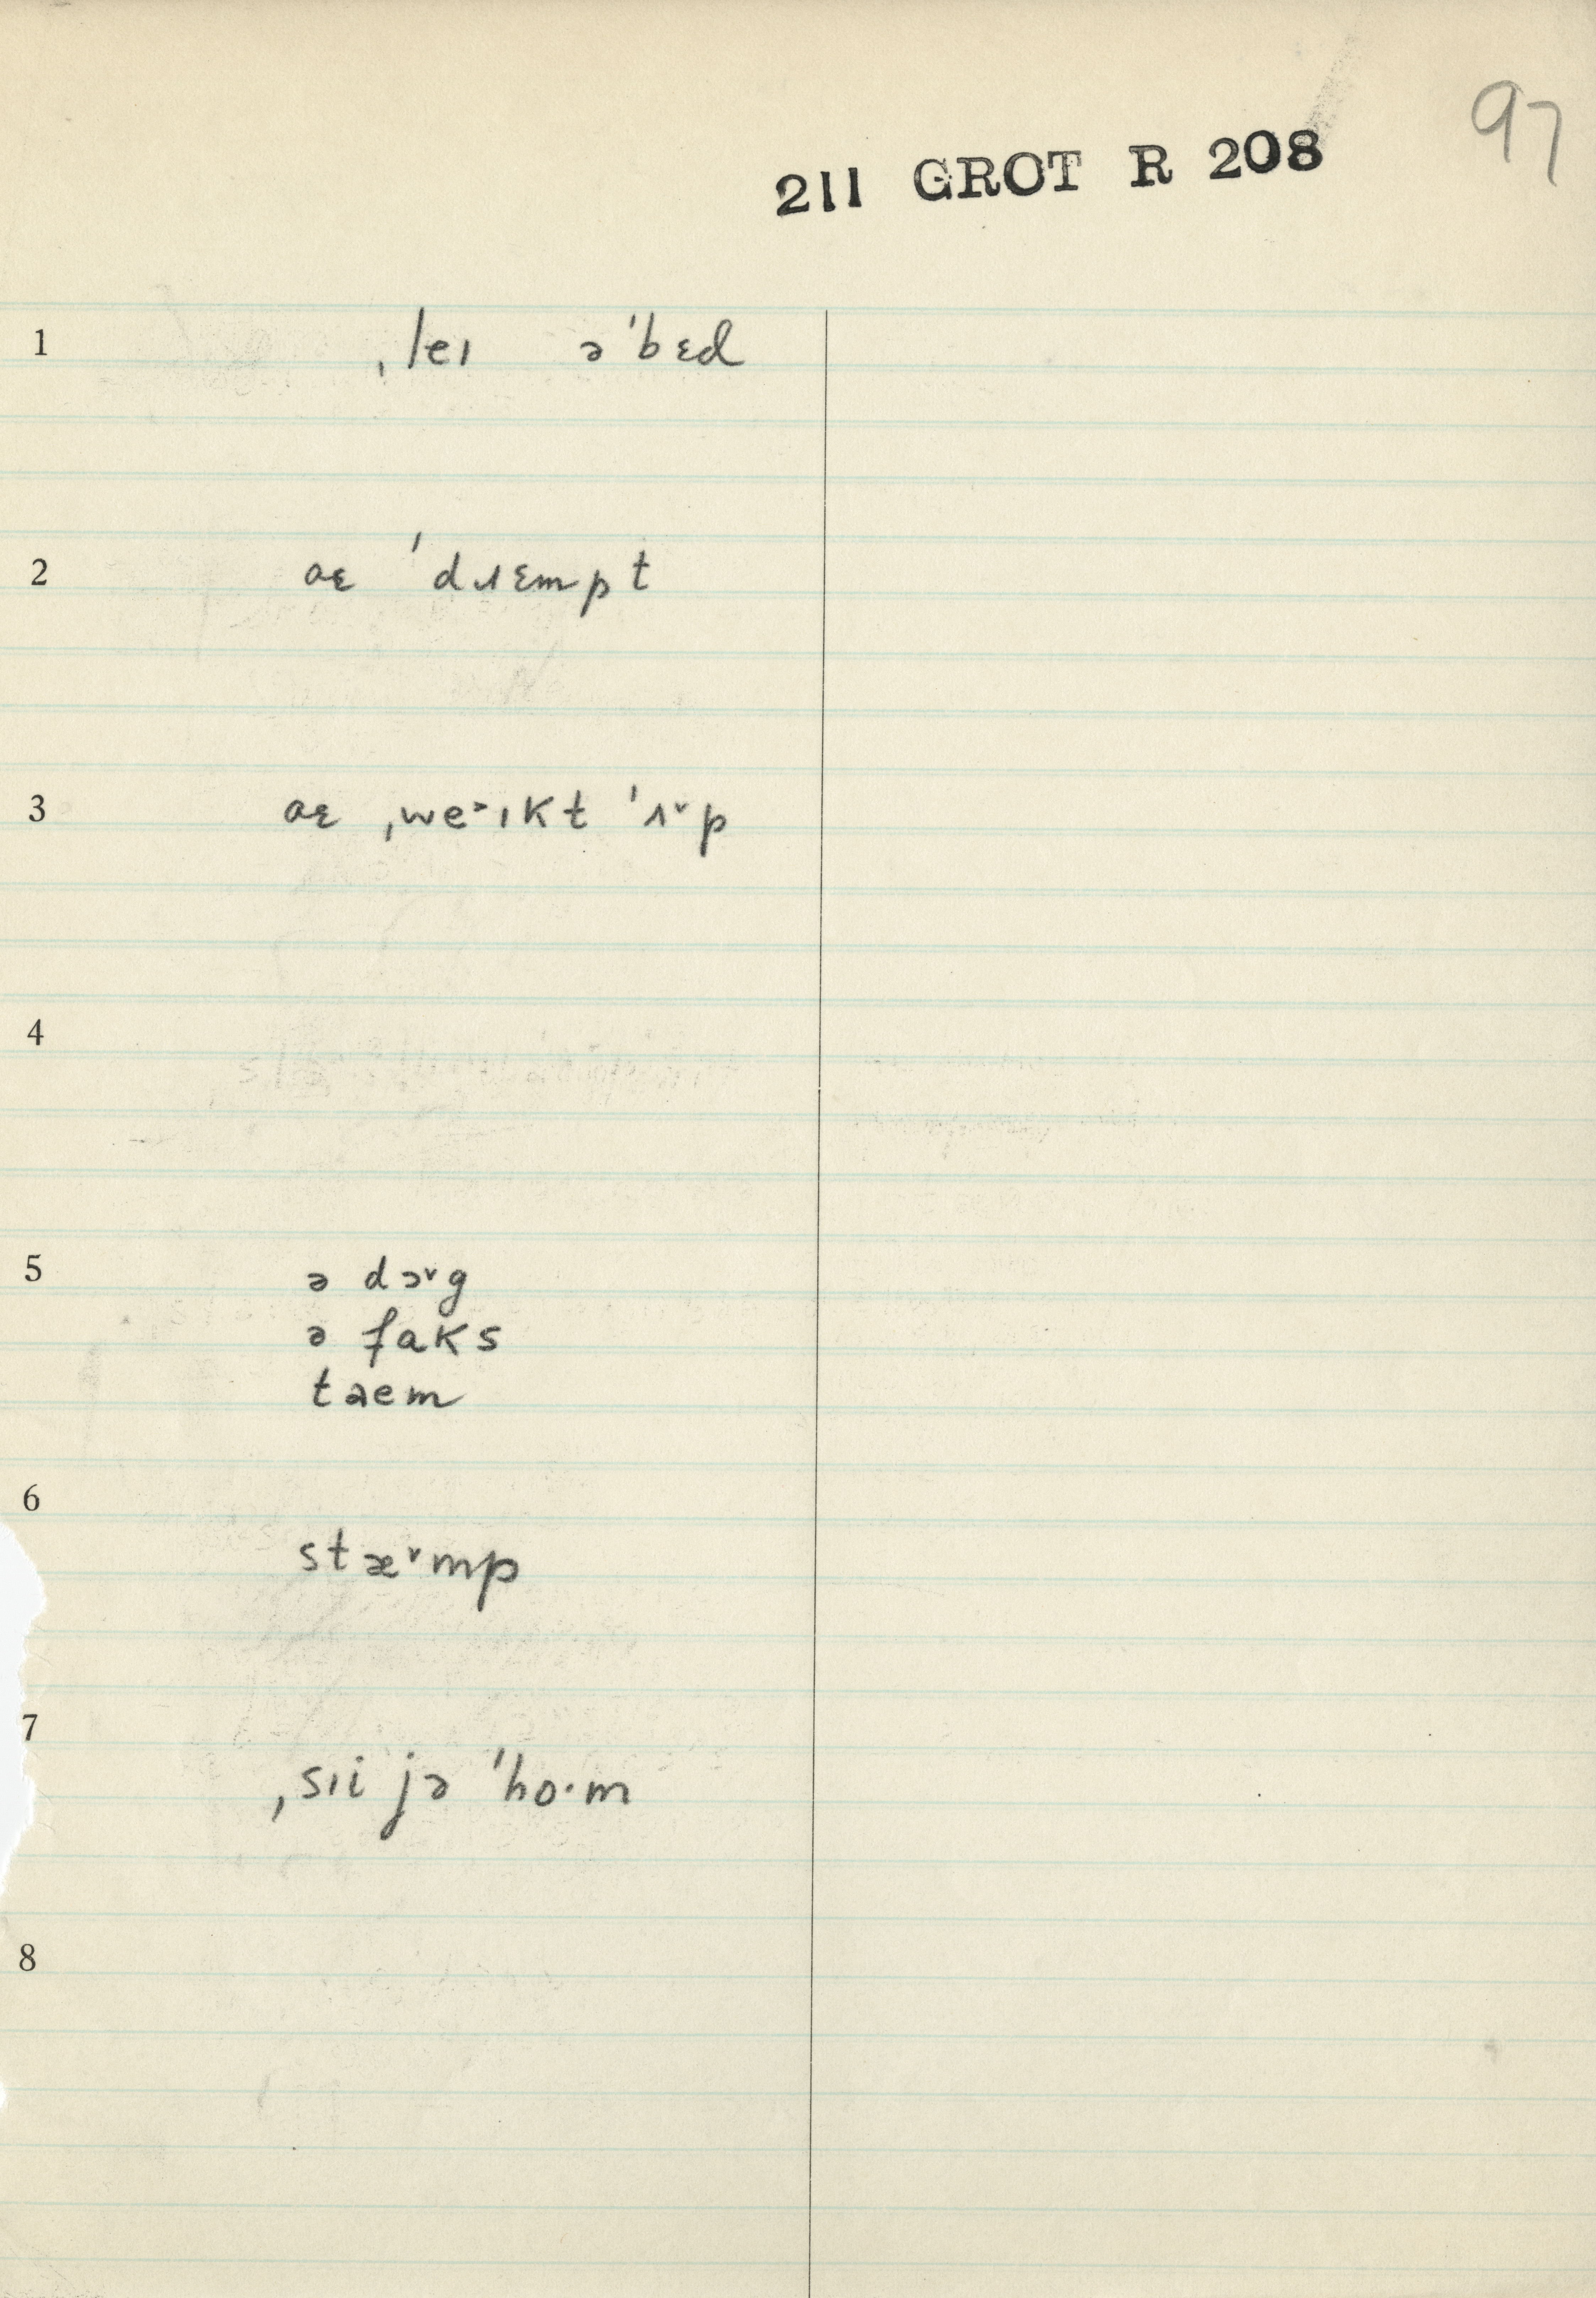 97
211 GROT R 208
1 ˌleɪ ə'bɛd
2 aɛ 'dɹɛmpt
3 aɛ ˌwe˃ɪkt 'ʌ˅p
4
5 ə dɔ˅g
ə faks
taem
6
stæ˅mp
7
ˌsɪi jə 'ho·m
8